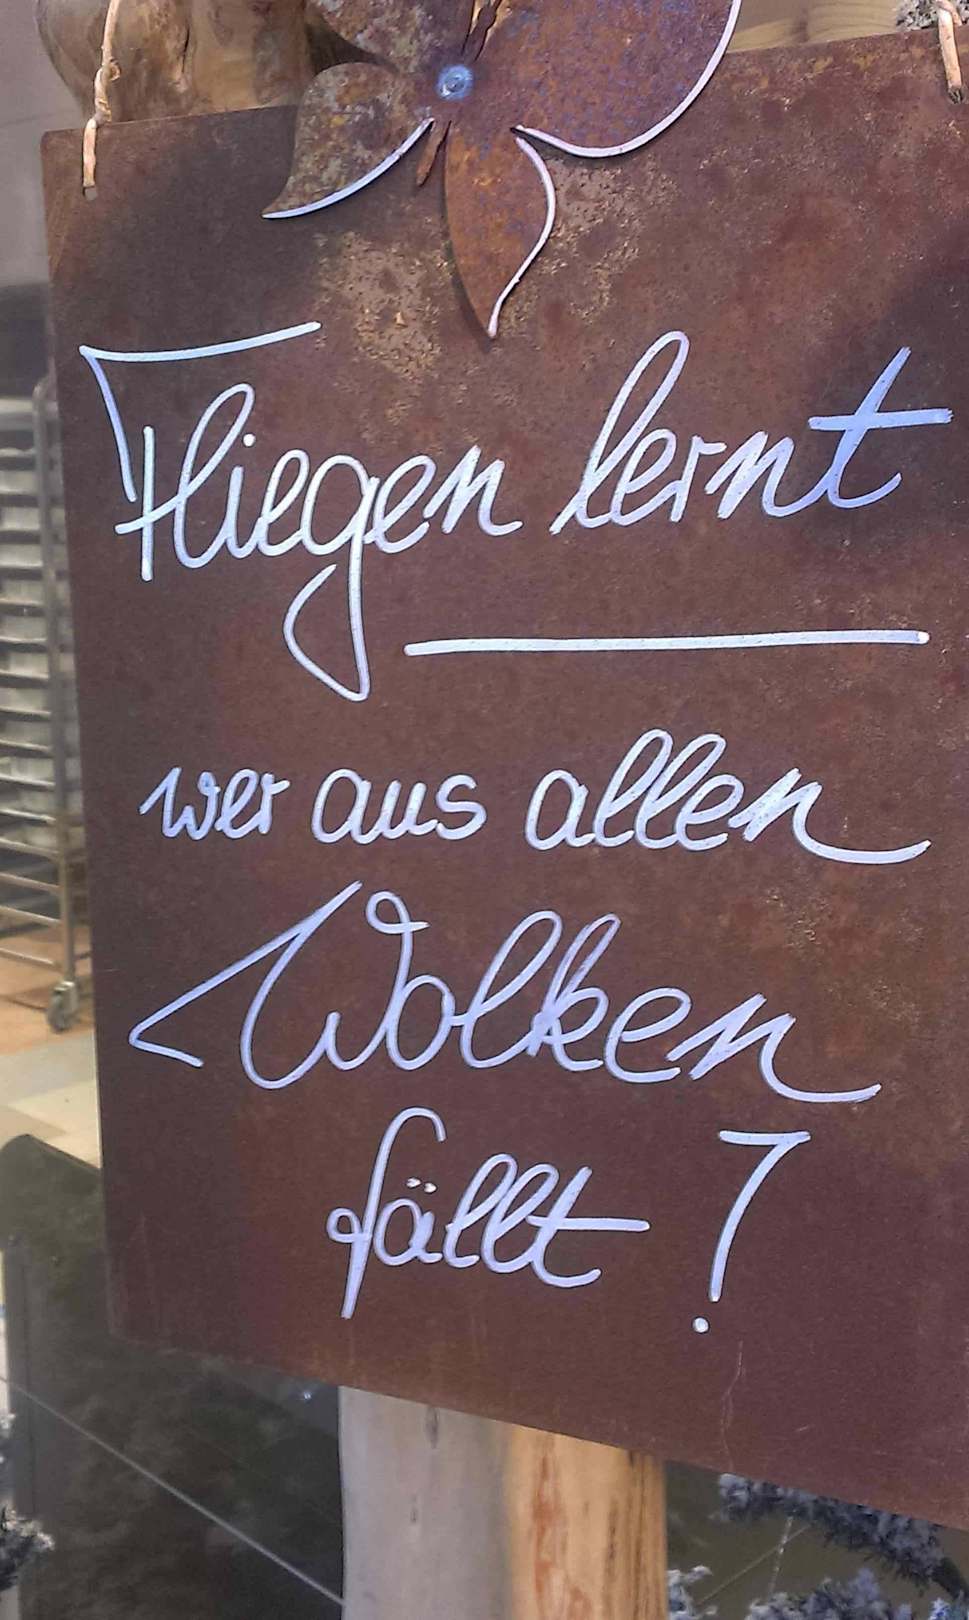 Fliegen lernt
wer aus allen
Wolken
fällt!